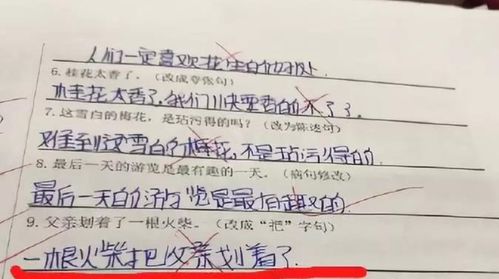 人们一定喜欢花生的好处.
6. 桂花太香了。（改成夸张句）
桂花太香了,我们快要香的不了了.
7. 这雪白的梅花，是玷污得的吗？（改为陈述句）
难到这雪白的梅花,不是玷污得的.
8. 最后一天的游览是最有趣的一天。（病句修改）
最后一天的游览是最有趣的.
9. 父亲划着了一根火柴。（改成“把”字句）
一根火柴把父亲划着了.